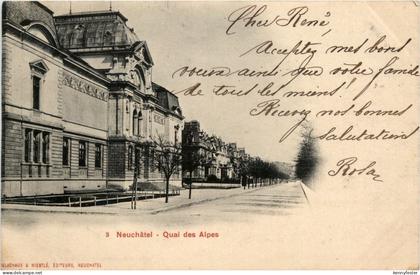 Cher René,
Acceptez mes bons
vœux ainsi que votre famille
de tous les miens!
Recevez nos bonnes
salutations
Rosa
3 Neuchâtel - Quai des Alpes
& NIESTLÉ, ÉDITEURS, NEUCHATEL